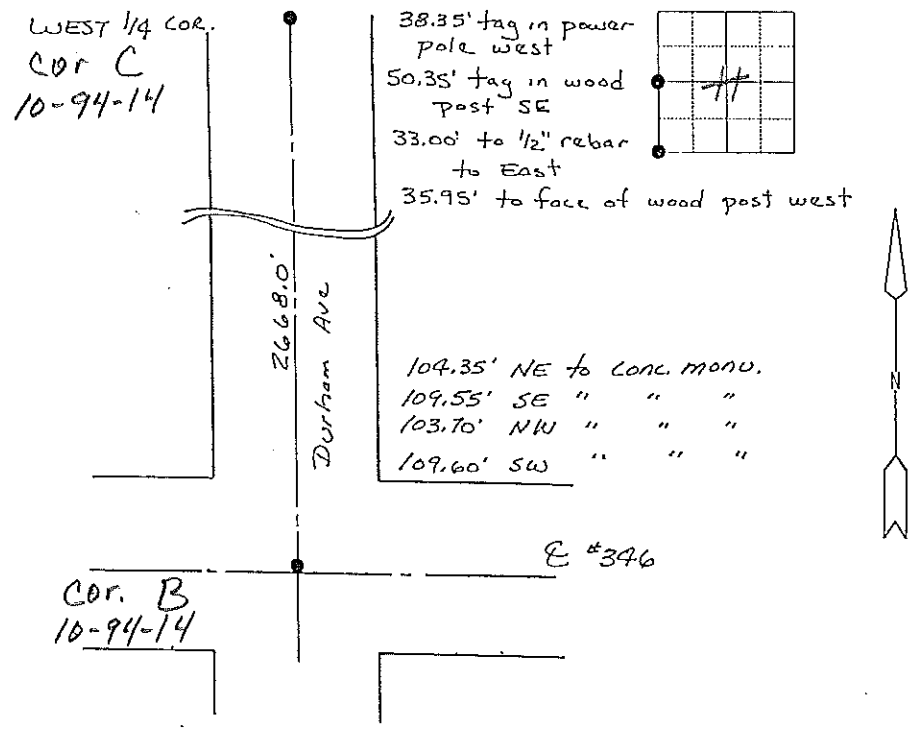 WEST 1/4 COR.
Cor C
10-94-14
38.35' tag in power
pole west
50.35' tag in wood
post SE
33.00' to 1/2" rebar
to East
35.95' to face of wood post west
2668.0'
Durham Ave
104.35' NE to conc. monu.
109.55' SE " " "
103.70' NW " " "
109.60' SW " " "
N
℄ #346
Cor. B
10-94-14